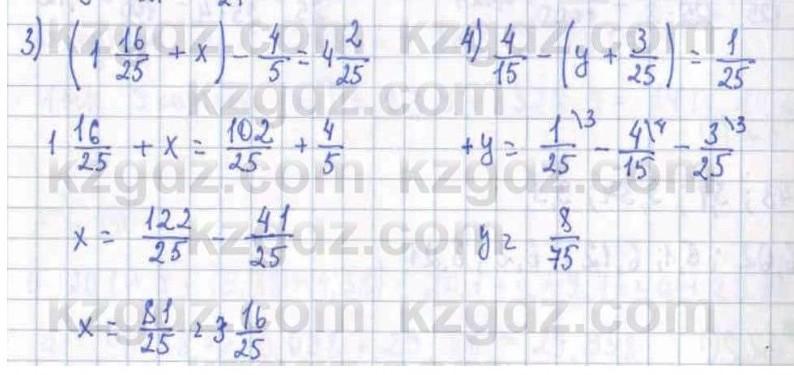 3) (1 16/25 + x) - 4/5 = 4 2/25
1 16/25 + x = 102/25 + 4/5
x = 122/25 - 41/25
x = 81/25 = 3 16/25
4) 4/15 - (y + 3/25) = 1/25
+y = 1/25 \3 - 4/15 \4 - 3/25 \3
y = 8/75
kzgdz.com kzgdz.com
kzgdz.com kzgdz.com
kzgdz.com kzgdz.com
kzgdz.com kzgdz.com
kzgdz.com kzgdz.com